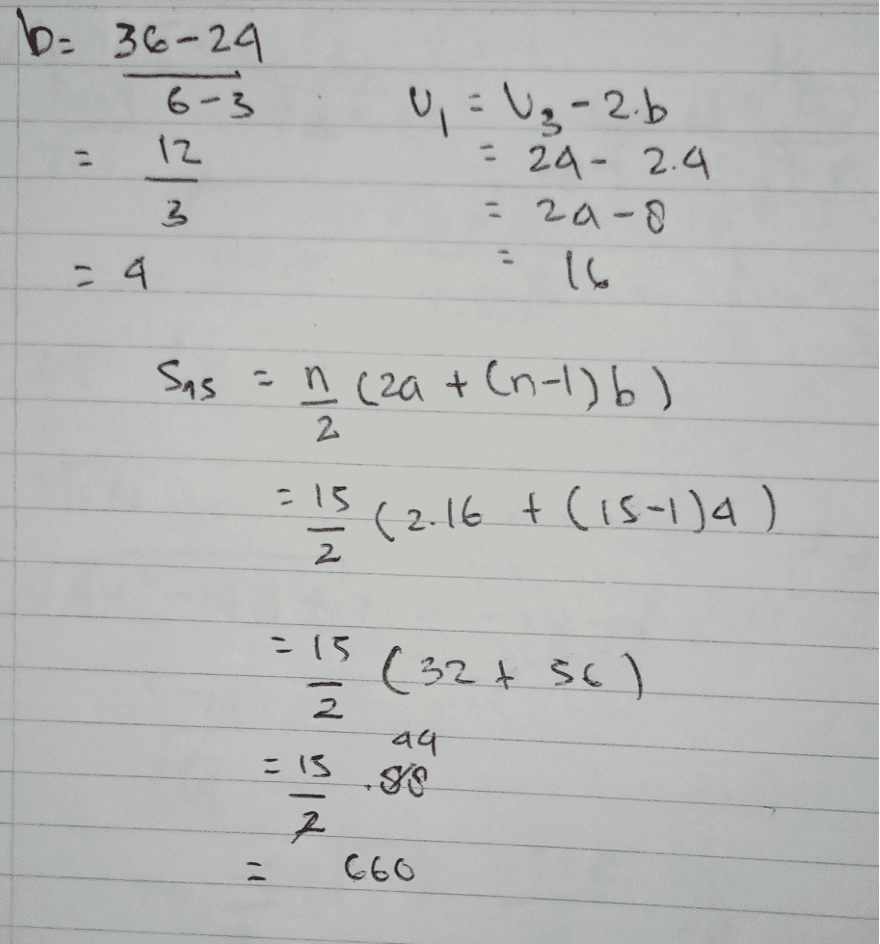 b= 36-24
6-3
= 12
3
= 4
U1 = U3 - 2.b
= 24 - 2.4
= 24 - 8
= 16
S15 = n (2a + (n-1)b)
2
= 15 (2.16 + (15-1)4)
2
= 15 (32 + 56)
2
44
= 15 .88
2
= 660